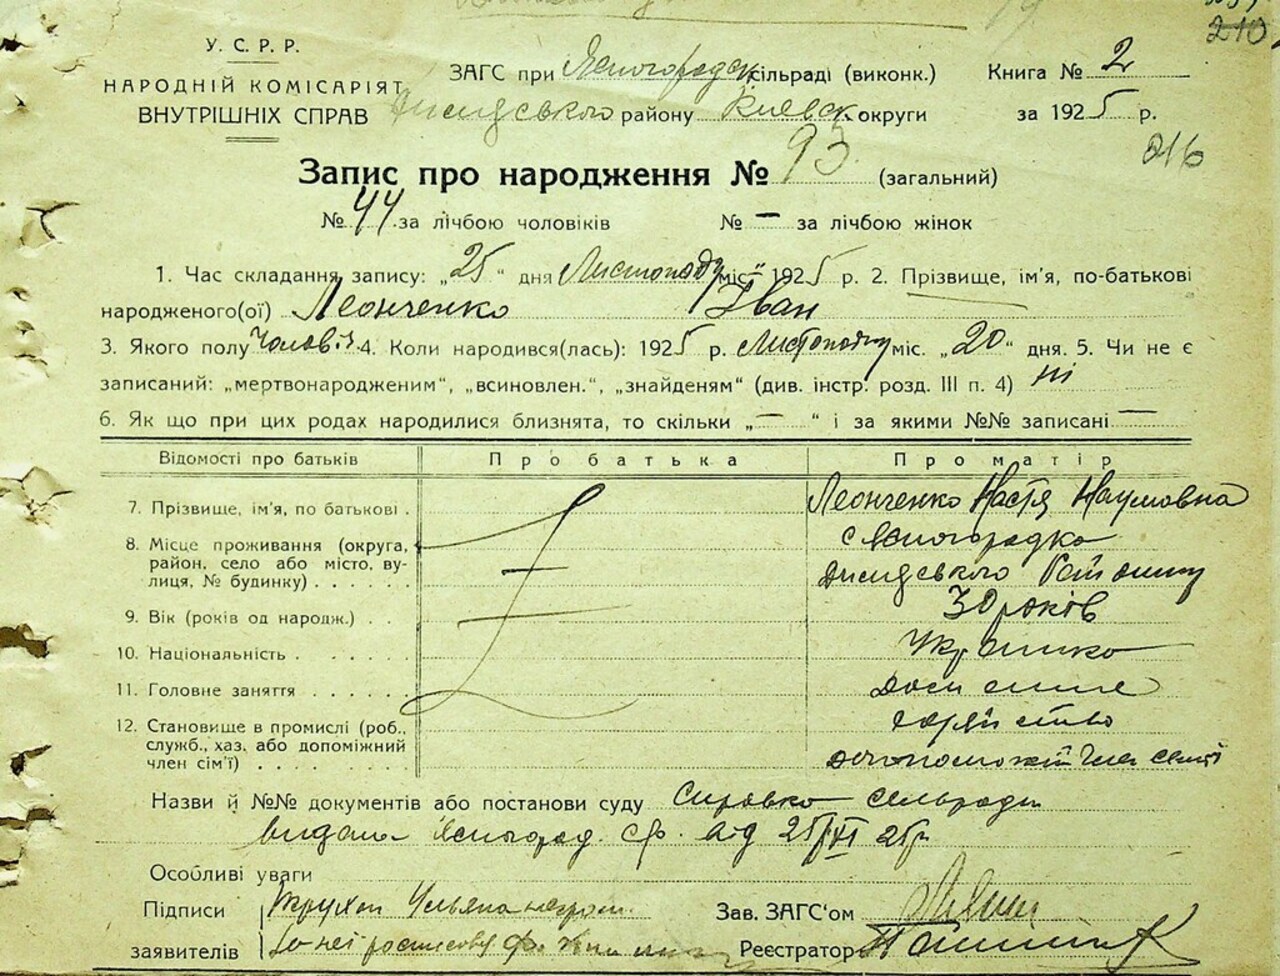 210
У. С. Р. Р.
НАРОДНІЙ КОМІСАРІЯТ
ВНУТРІШНІХ СПРАВ
ЗАГС при Ясногородск. сільраді (виконк.)
району Києвск. округи
Книга № 2
за 1925 р.
216
Запис про народження № 93 (загальний)
№ 44 за лічбою чоловіків № — за лічбою жінок
1. Час складання запису: „25“ дня Листопаду міс. 1925 р. 2. Прізвище, ім'я, по-батькові
народженого(ої) Леонченко Іван
3. Якого полу Чолов. 4. Коли народився(лась): 1925 р. Листопаду міс. „20“ дня. 5. Чи не є
записаний: „мертвонародженим“, „всиновлен.“, „знайденям“ (див. інстр. розд. III п. 4) ні
6. Як що при цих родах народилися близнята, то скільки „—“ і за якими №№ записані —
Відомості про батьків Про батька Про матір
7. Прізвище, ім'я, по батькові . Леонченко Настя Наумовна
8. Місце проживання (округа, с Ясногородка
район, село або місто, ву-
лиця, № будинку) . . . . . .
9. Вік (років од народж.) . . 30 років
10. Національність . . . . . Українка
11. Головне заняття . . . . . .
12. Становище в промислі (роб.,
служб., хаз. або допоміжний
член сім'ї) . . . . . . . . член семї
Назви й №№ документів або постанови суду Справка сельради
видана Ясногород. с/р. від 25/XI 25р.
Особливі уваги
Підписи
заявителів
Зав. ЗАГС'ом
Реєстратор